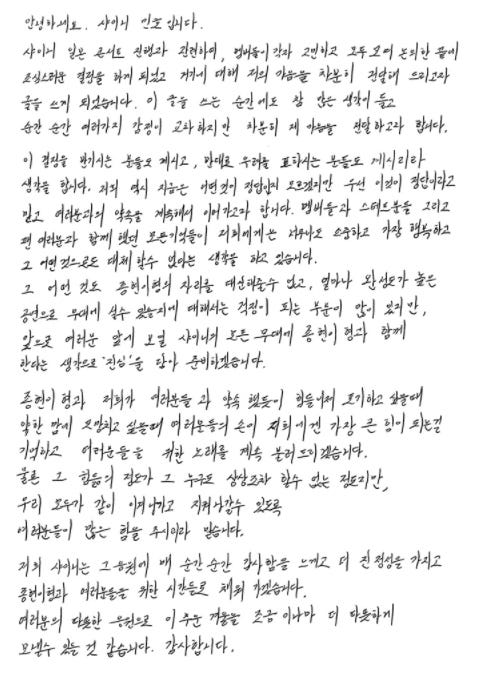 안녕하세요. 샤이니 민호입니다.
샤이니 일본 콘서트 진행과 관련하여, 멤버들이 각자 고민하고 모두 모여 논의한 끝에
조심스러운 결정을 하게 되었고 거기에 대해 저의 마음을 차분히 전달해 드리고자
글을 쓰게 되었습니다. 이 글을 쓰는 순간에도 참 많은 생각이 들고
순간 순간 여러가지 감정이 교차하지만 차분히 제 마음을 전달하고자 합니다.
이 결정을 반기시는 분들도 계시고, 반대로 우려를 표하시는 분들도 계시리라
생각을 합니다. 저희 역시 지금은 어떤것이 정답인지 모르겠지만 우선 이것이 정답이라고
믿고 여러분과의 약속을 계속해서 이어가고자 합니다. 멤버들과 스태프분들 그리고
팬 여러분과 함께 했던 모든기억들이 저희에게는 너무나도 소중하고 가장 행복하고
그 어떤것으로도 대체 할수 없다는 생각을 하고 있습니다.
그 어떤 것도 종현이형의 자리를 대신해줄수 없고, 얼마나 완성도가 높은
공연으로 무대에 설수 있을지에 대해서는 걱정이 되는 부분이 많이 있지만,
앞으로 여러분 앞에 보일 샤이니의 모든 무대에 종현이형과 함께
한다는 생각으로 '진심'을 담아 준비하겠습니다.
종현이형과 저희가 여러분들과 약속 했듯이 힘들어서 포기하고 싶을때
약한 맘에 도망치고 싶을때 여러분들의 손이 저희에겐 가장 큰 힘이 되는걸
기억하고 여러분들을 위한 노래를 계속 불러드리겠습니다.
물론 그 힘듦의 정도가 그 누구도 상상조차 할수 없는 정도지만,
우리 모두가 같이 이겨나가고 지켜나갈수 있도록
여러분들이 많은 힘을 주시리라 믿습니다.
저희 샤이니는 그 응원에 매 순간순간 감사함을 느끼고 더 진정성을 가지고
종현이형과 여러분들을 위한 시간들로 채워 가겠습니다.
여러분의 따뜻한 응원으로 이 추운 겨울을 조금이나마 더 따뜻하게
보낼수 있을 것 같습니다. 감사합니다.